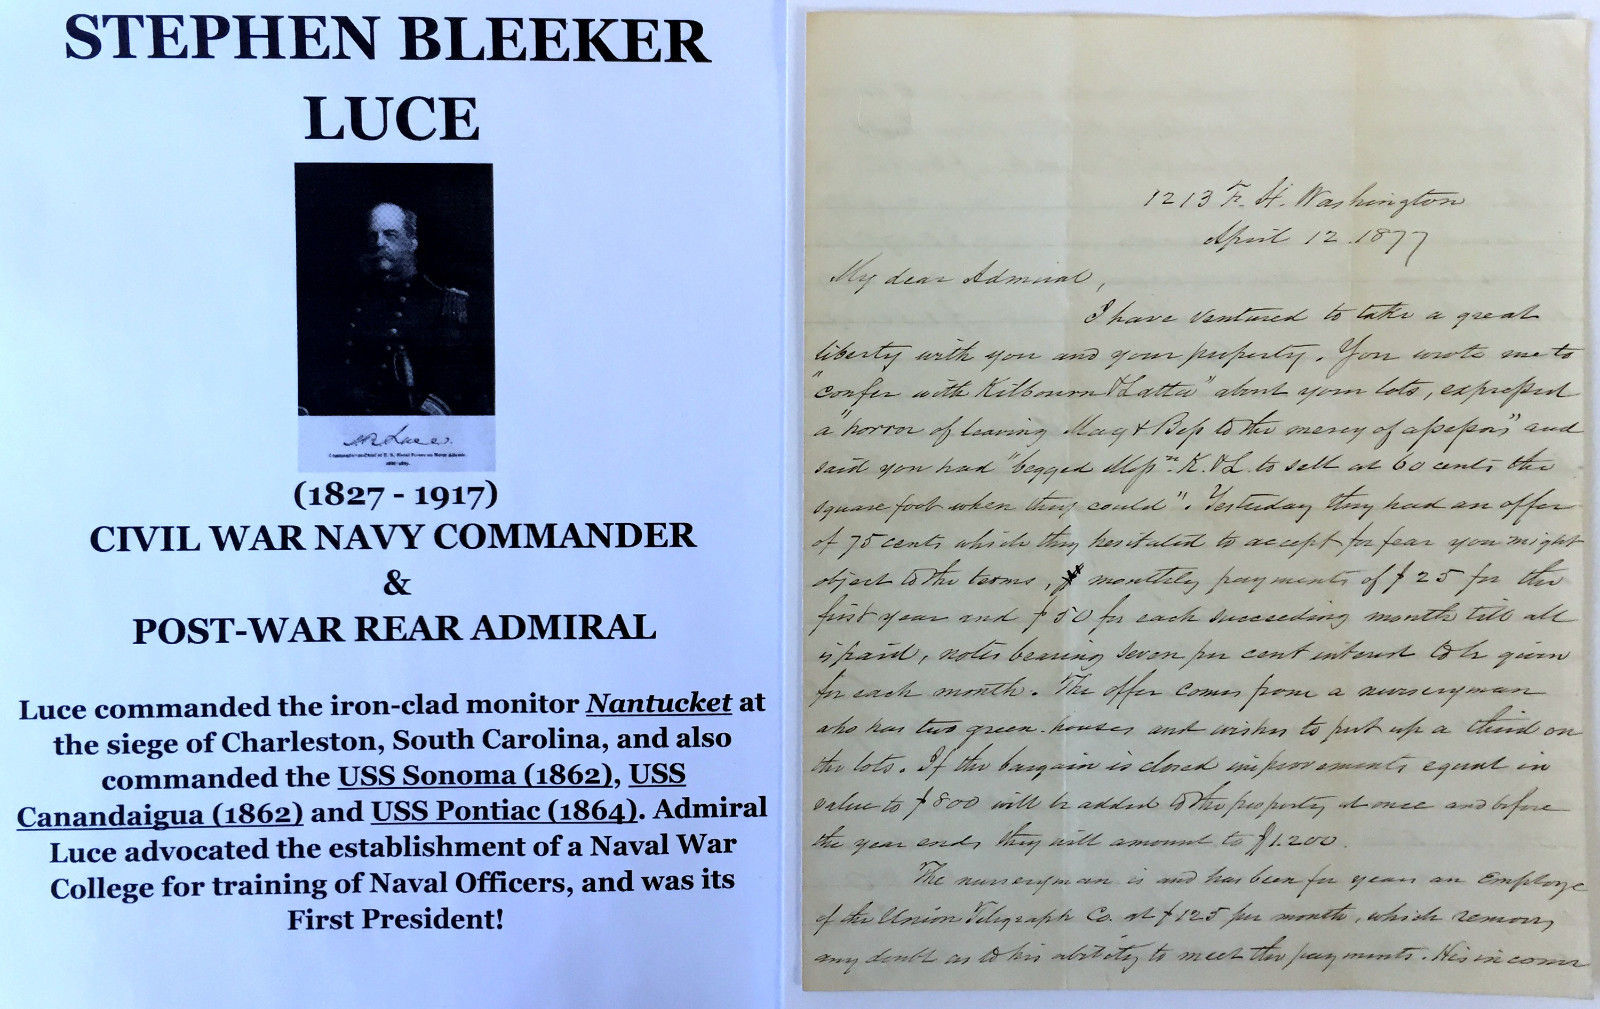 STEPHEN BLEEKER
LUCE
(1827 - 1917)
CIVIL WAR NAVY COMMANDER
&
POST-WAR REAR ADMIRAL
Luce commanded the iron-clad monitor Nantucket at
the siege of Charleston, South Carolina, and also
commanded the USS Sonoma (1862), USS
Canandaigua (1862) and USS Pontiac (1864). Admiral
Luce advocated the establishment of a Naval War
College for training of Naval Officers, and was its
First President!
1213 F. St. Washington
April 12. 1877
My dear Admiral,
I have ventured to take a great
liberty with you and your property. You wrote me to
"confer with Kilbourn & Latta" about your lots, expressed
a "horror of leaving May & Bep to the mercy of assessors" and
said you had "begged Mess rs. K. & L. to sell at 60 cents the
square foot when they could". Yesterday they had an offer
of 75 cents which they hesitated to accept for fear you might
object to the terms, monthly payments of $25 for the
first year and $50 for each succeeding month till all
is paid, notes bearing seven per cent interest to be given
for each month. The offer comes from a nurseryman
who has two green-houses and wishes to put up a third on
the lots. If the bargain is closed improvements equal in
value to $800 will be added to the property at once and before
the year ends they will amount to $1.200.
The nurseryman is and has been for years an employe
of the Union Telegraph Co. at $125 per month, which removes
any doubt as to his ability to meet the payments. His income